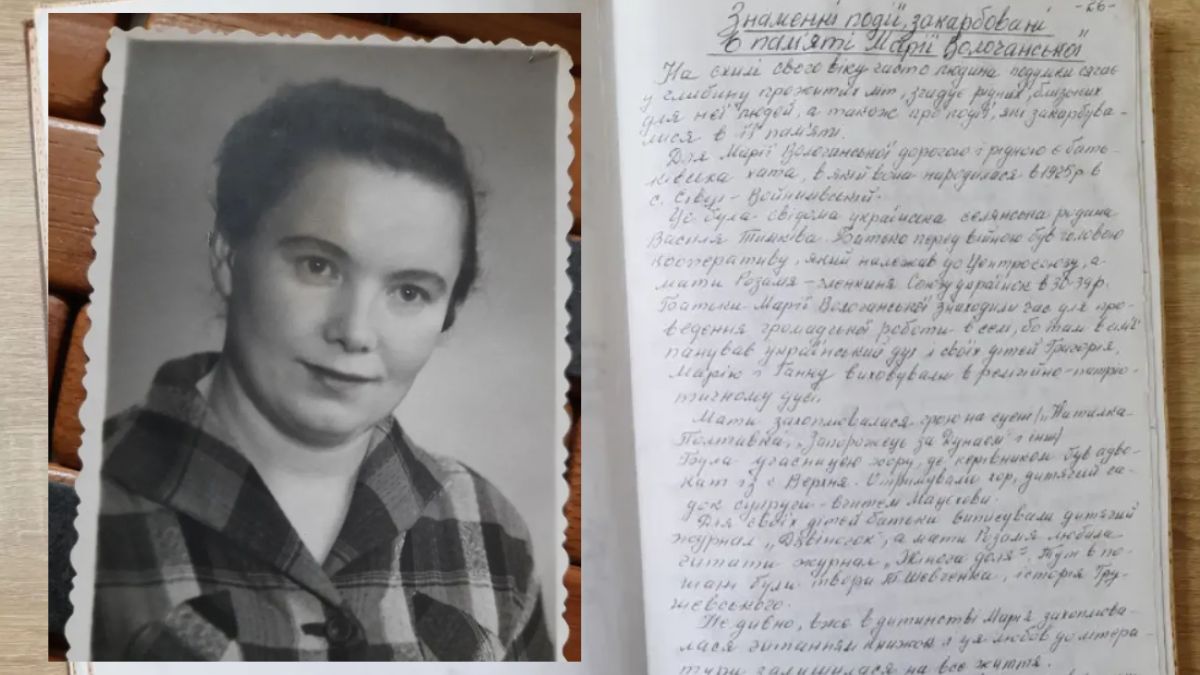 -26-
Знаменні події, закарбовані
в пам'яті Марії Вологанської
На схилі свого віку часто людина подумки сягає
у глибину прожитих літ, згадує рідних, близьких
для неї людей, а також про події, які закарбува-
лися в її пам'яті.
Для Марії Вологанської дорогою і рідною є бать-
ківська хата, в якій вона народилася в 1925 р. в
с. Сівці-Войнилівській.
Це була свідома українська селянська родина
Василя Тимківа. Батько перед війною був головою
кооперативу, який належав до Центросоюзу, а
мати Розалія - членкиня Союзу українок в 30-39 р.
Батьки Марії Вологанської знаходили час для про-
ведення громадської роботи в селі, бо там в сім'ї
панував український дух і своїх дітей Григорія,
Марію і Ганну виховували в релігійно-патріо-
тичному дусі.
Мати захоплювалася грою на сцені ("Наталка-
Полтавка", "Запорожець за Дунаєм" і інші)
Була учасницею хору, де керівником був адво-
кат із с Верхня. Отримували хор, дитячий са-
док
Для своїх дітей батьки виписували дитячий
журнал "Дзвіночок", а мати Розалія любила
читати журнал "Жіноча доля". Тут в по-
шані були твори Т. Шевченка, історія Гру-
шевського.
Не дивно, вже в дитинстві Марія захоплюва-
лася читанням книжок і ця любов до літера-
тури залишилася на все життя.